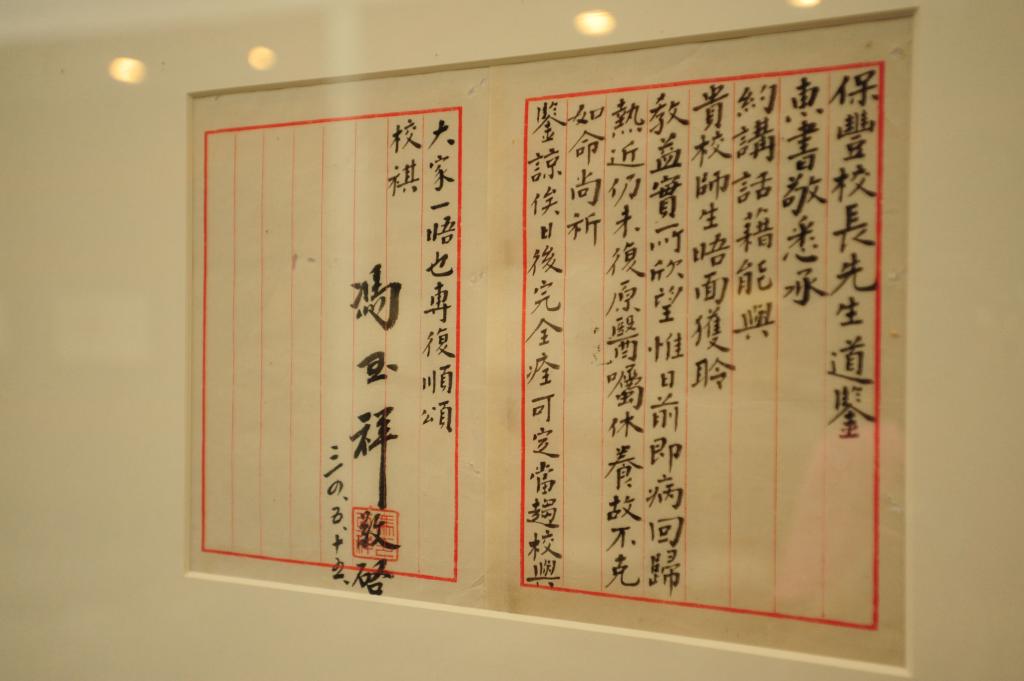 保豐校長先生道鑒
惠書敬悉承
約講話藉能與
貴校師生晤面獲聆
教益實所欣望惟日前即病回歸
熱近仍未復原醫囑休養故不克
如命尚祈
鑒諒俟日後完全痊可定當趨校與
大家一晤也專復順頌
校祺
馮玉祥敬啓
三〇、五、十五、